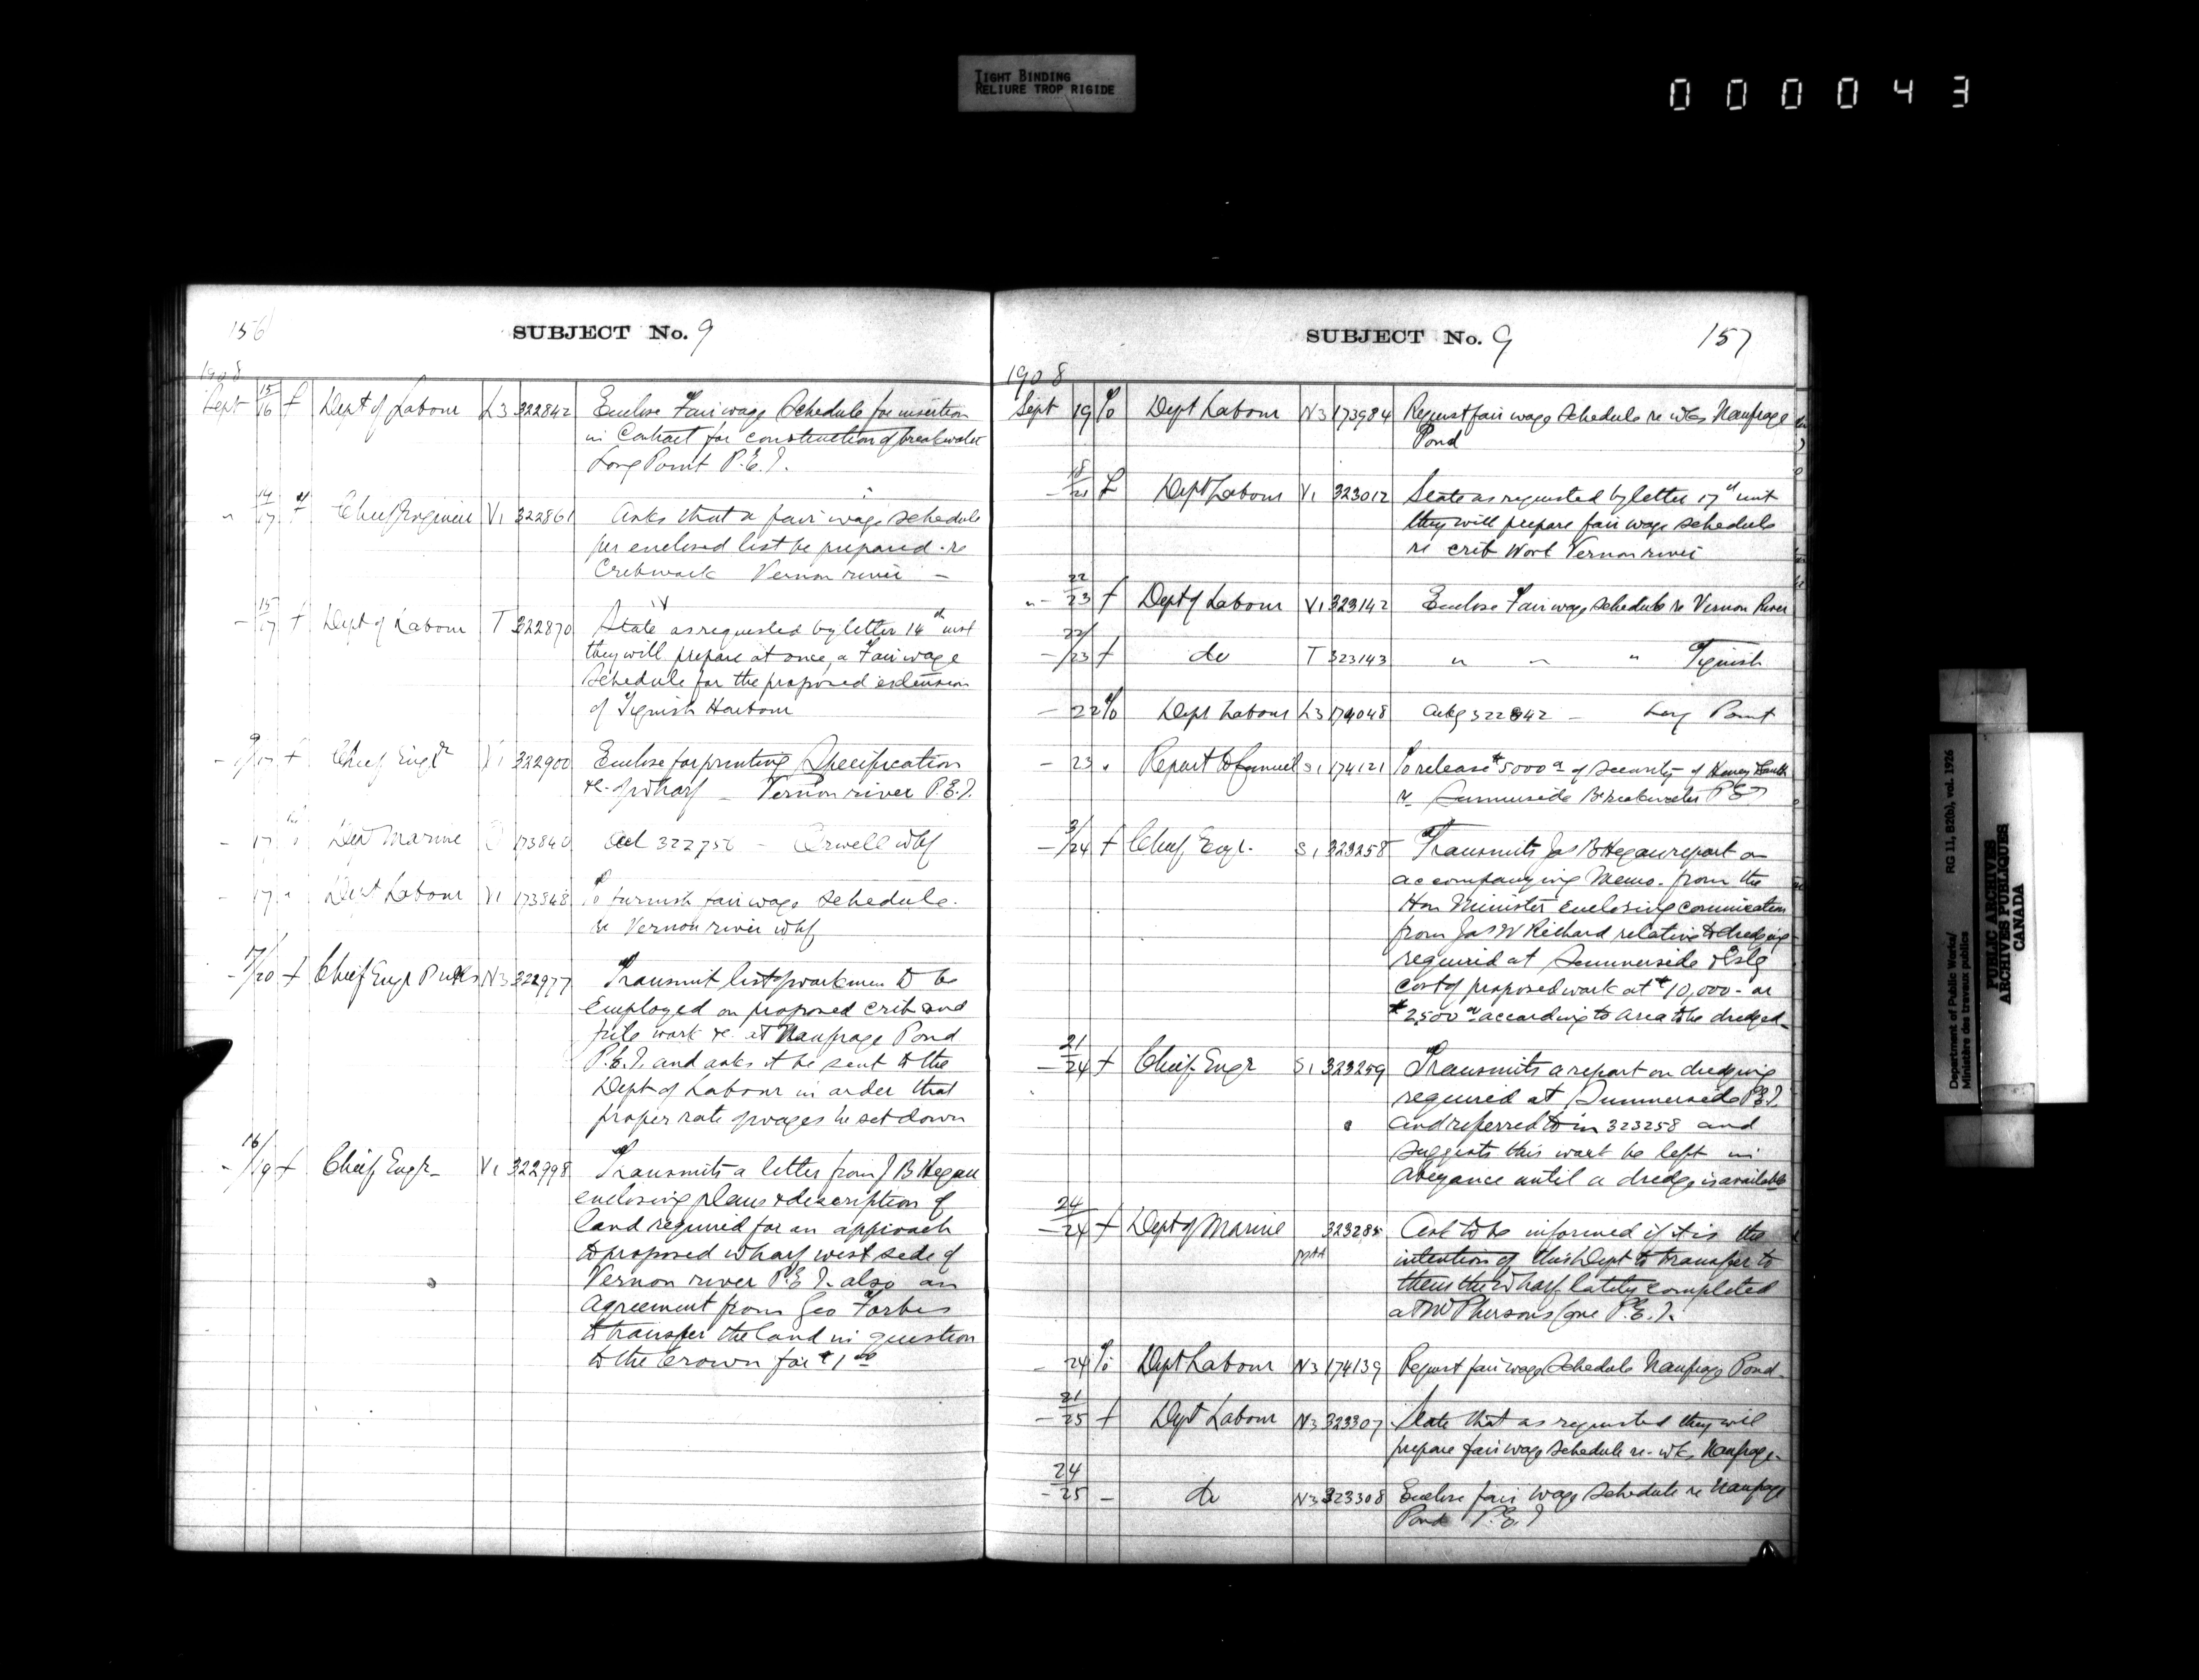 TIGHT BINDING
RELIURE TROP RIGIDE
000043
156
SUBJECT No. 9
1908
Sept 15/16 f Dept of Labour L3 322842 Enclose Fair wage Schedule for insertion
in Contract for construction of breakwater
Long Point P.E.I.
" 14/17 f Chief Engineer V1 322861 Asks that a fair wage schedule
per enclosed list be prepared re
Cribwork Vernon river -
- 15/17 f Dept of Labour T 322870 State as requested by letter 14th inst
they will prepare at once, a Fair wage
Schedule for the proposed extension
of Tignish Harbour
- 9/17 f Chief Engr V1 322900 Enclose for printing Specification
&c. of Wharf - Vernon river P.E.I.
- 17 Dept Marine O 173840 322756 - Orwell Whf
- 17 " Dept Labour V1 173848 To furnish fair wage schedule.
re Vernon river whf
- 17/20 f Chief Engr P Wks N3 322977 Transmit list of workmen to be
employed on proposed crib and
pile work &c. at Naufrage Pond
P.E.I. and asks it be sent to the
Dept of Labour in order that
proper rate of wages be set down
- 16/19 f Chief Engr- V1 322998 Transmits a letter from J B Hegan
enclosing plans & description of
land required for an approach
to proposed wharf west side of
Vernon river P.E.I. also an
agreement from Geo Forbes
to transfer the land in question
to the Crown for $1.00
SUBJECT No. 9
157
1908
Sept 19 % Dept Labour N3 173984 Request fair wage schedule re wks Naufrage
Pond
- 18/21 f Dept Labour V1 323012 State as requested by letter 17th inst
they will prepare fair wage schedule
re crib work Vernon river
" - 22/23 f Dept of Labour V1 323142 Enclose Fair wage schedule re Vernon River
- 22/23 f do T 323143 " " " Tignish
- 22 % Dept Labour L3 174048 Ackg 322842 - Long Point
- 23 " Report to Council S1 174121 To release $5000 of security of
re Summerside Breakwater P.E.I
- 3/24 f Chief Engr. S1 323258 Transmits Jas B Hegan report on
accompanying Memo. from the
Hon Minister enclosing comunication
from Jas W Richard relative to dredging
required at Summerside & Estg
cost of proposed work at $10,000- or
$2500 according to area to be dredged-
- 21/24 f Chief Engr S1 323259 Transmits a report on dredging
required at Summerside P.E.I.
and referred to in 323258 and
suggests this work be left in
abeyance until a dredge is available
- 24/24 f Dept of Marine 323285 Ask to be informed if it is the
intention of this Dept to transfer to
them the Wharf lately completed
at McPhersons Cove P.E.I.
- 24 % Dept Labour N3 174139 Request fair wage Schedule Naufrage Pond.
- 21/25 f Dept Labour N3 323307 State that as requested they will
prepare fair wage schedule re- wks Naufrage-
- 24/25 - do N3 323308 Enclose fair wage schedule re Naufrage
Pond P.E.I
Department of Public Works/ RG 11, B2(b), vol. 1926
Ministère des travaux publics
PUBLIC ARCHIVES
ARCHIVES PUBLIQUES
CANADA